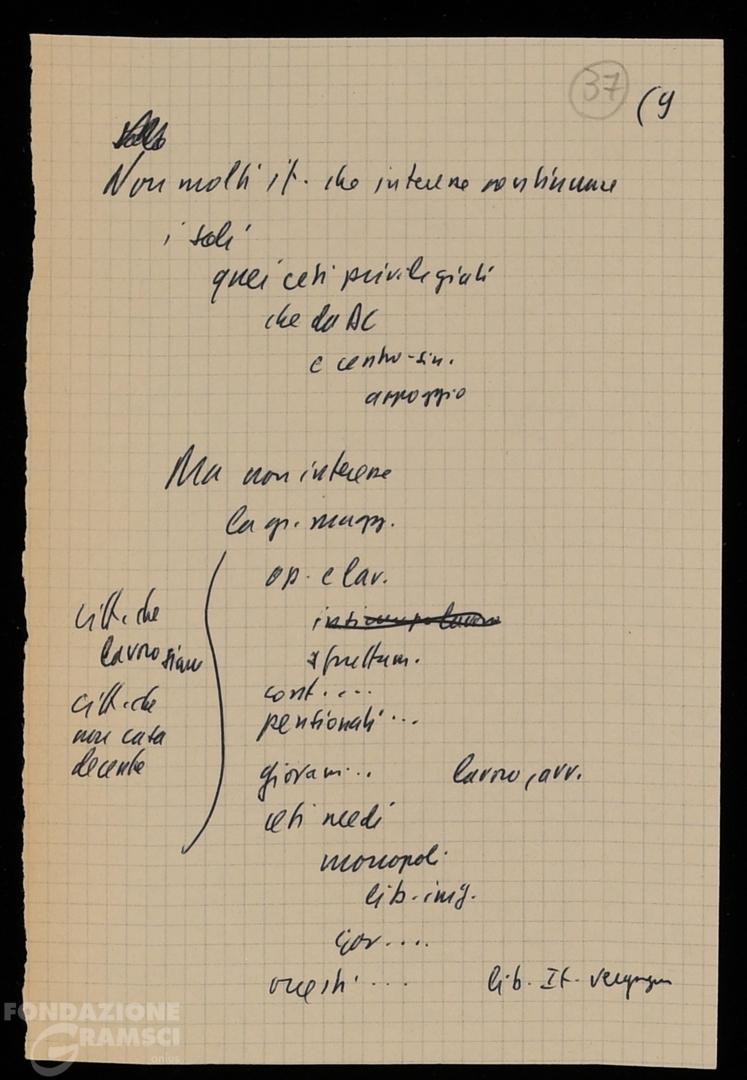 37
(9
Non molti it. che interesse continuare
i soli
quei ceti privilegiati
che da AC
e centro-sin.
appoggio
Ma non interesse
la gr. magg.
op. e lav.
sfruttam.
citt. che
lavoro
cont. ...
citt. che
pensionati ...
non casa
decente
giovani ... lavoro, avv.
ceti medi
monopoli
lib. ing.
giov. ...
onesti ... lib. It. vergogna
FONDAZIONE
GRAMSCI
onlus